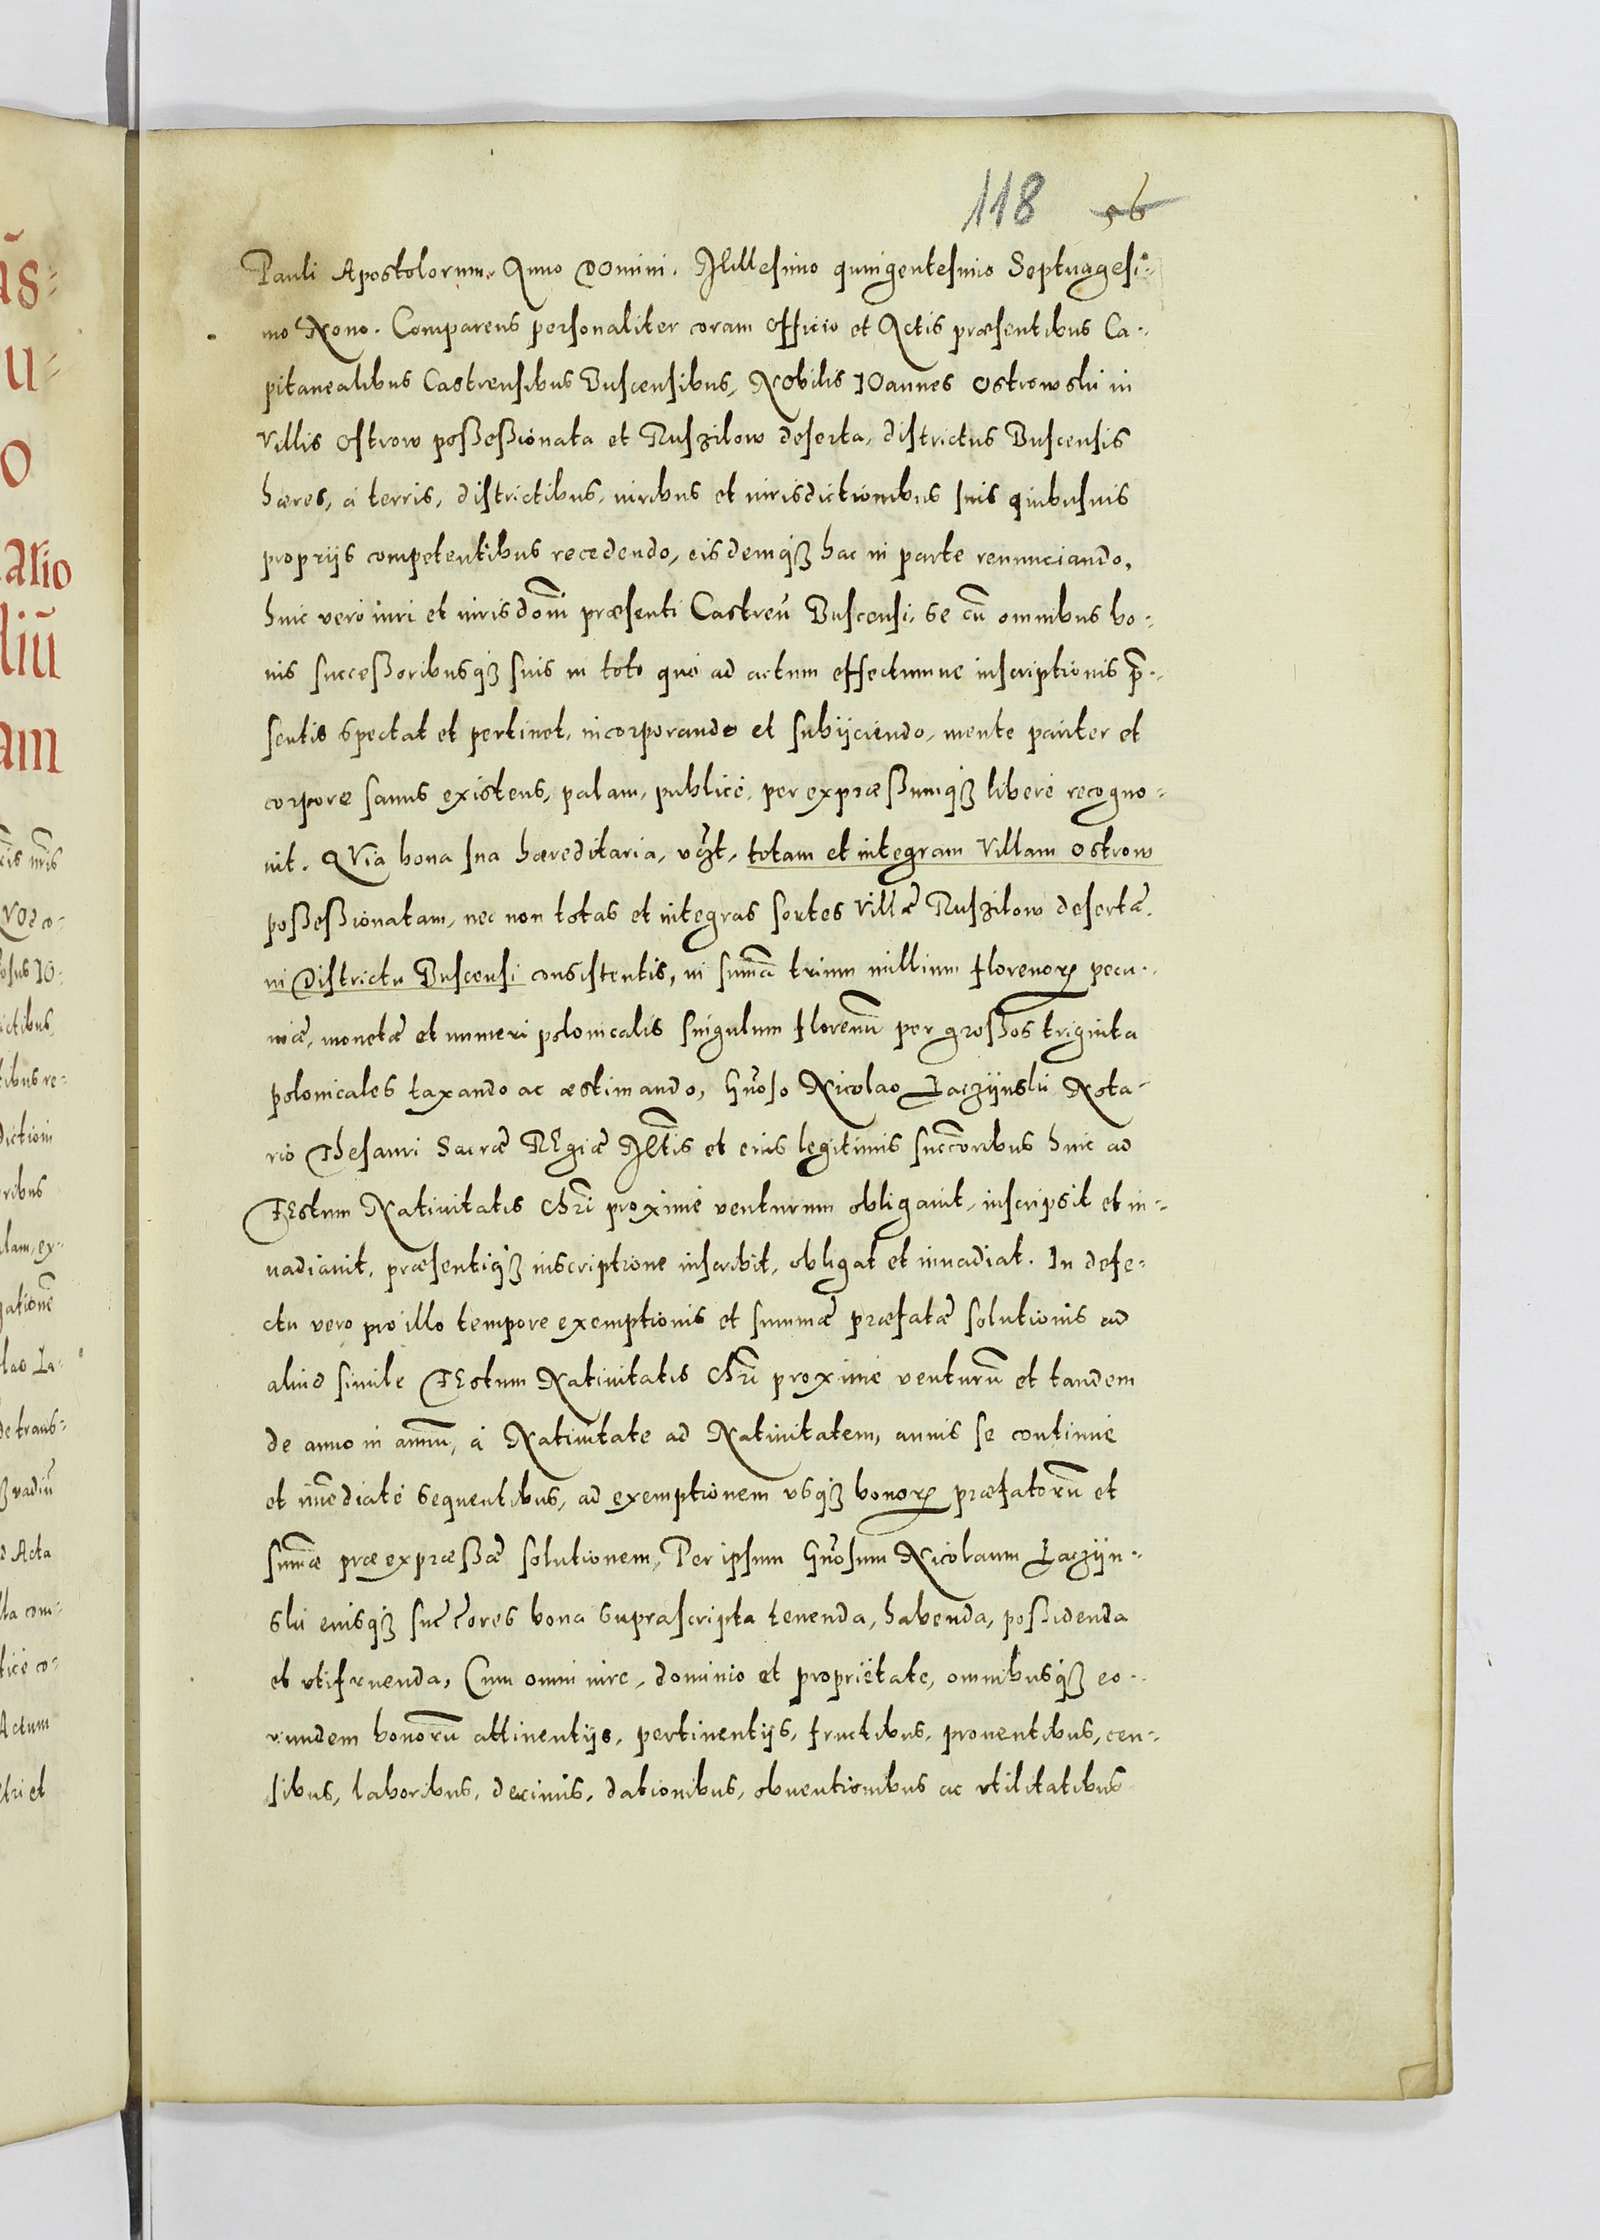 118 56
Pauli Apostolorum. Anno Domini. Millesimo quingentesimo Septuagesi-
mo Nono. Comparens personaliter coram officio et Actis præsentibus Ca-
pitanealibus Castrensibus Buscensibus, Nobilis IOannes Ostrowski in
Villis Ostrow poßeßionata et Ruszilow deserta, districtus Buscensis
hæres, à terris, districtibus, iuribus et iurisdictionibus suis quibusuis
proprijs competentibus recedendo, eisdemqȝ hac in parte renunciando,
huic vero iuri et iurisdoni præsenti Castreñ Buscensi, se cũ omnibus bo-
nis succeßoribusqȝ suis in toto quò ad actum effectumue inscriptionis p̃-
sentis spectat et pertinet, incorporando et subijciendo, mente pariter et
corpore sanus existens, palam, publicè, per expræßumqȝ liberè recogno-
uit. QVia bona sua hæreditaria, vȝt, totam et integram Villam Ostrow
poßeßionatam, nec non totas et integras sortes Villæ Ruszilow desertæ,
in Districtu Buscensi consistentis, in sum̃a trium millium florenoꝝ pecu-
niæ, monetæ et numeri polonicalis singulum florenũ per großos triginta
polonicales taxando ac æstimando, Gñoso Nicolao Łączijnski Nota-
rio Thesauri Sacræ REgiæ Mt̃is et eius legitimis suc̃coribus hinc ad
FEstum Natiuitatis Chr̃i proximè venturum obligauit, inscripsit et in-
uadiauit, præsentiqȝ inscriptione inscribit, obligat et inuadiat. In defe-
ctu vero pro illo tempore exemptionis et summæ præfatæ solutionis ad
aliud simile FEstum Natiuitatis Chr̃i proximè venturũ et tandem
de anno in annũ, à Natiuitate ad Natiuitatem, annis se continuè
et im̃ediatè sequentibus, ad exemptionem vsqȝ bonoꝝ præfatorũ et
sum̃æ præexpræßæ solutionem, Per ipsum Gñosum Nicolaum Łączijn-
ski eiusqȝ suc̃cores bona suprascripta tenenda, habenda, poßidenda
et vtifruenda, Cum omni iure, dominio et proprietate, omnibusqȝ eo-
rundem bonorũ attinentijs, pertinentijs, fructibus, prouentibus, cen-
sibus, laboribus, decimis, dationibus, obuentionibus ac vtilitatibus